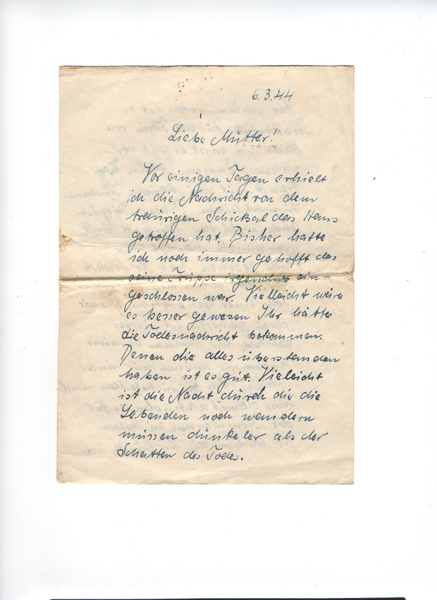 6.3.44
Liebe Mutter!
Vor einigen Tagen erhielt
ich die Nachricht von dem
traurigen Schicksal das Hans
getroffen hat. Bisher hatte
ich noch immer gehofft das
seine Truppe irgendwo ein
geschlossen war. Vielleicht wäre
es besser gewesen Ihr hätte
die Todesnachricht bekommen.
Denen die alles überstanden
haben ist es gut. Vieleicht
ist die Nacht durch die die
Lebenden noch wandern
müssen dunkeler als der
Schatten des Todes.